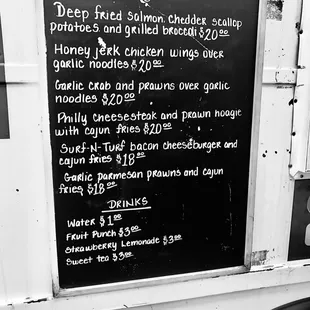 Deep fried salmon, chedder scallop
potatoes and grilled broccoli $20.00
Honey jerk chicken wings over
garlic noodles $20.00
Garlic crab and prawns over garlic
noodles $20.00
Philly cheesesteak and prawn hoagie
with cajun fries $20.00
Surf-N-Turf bacon cheeseburger and
cajun fries $18.00
Garlic parmesan prawns and cajun
fries $18.00
DRINKS
Water $1.00
Fruit Punch $3.00
Strawberry Lemonade $3.00
Sweet tea $3.00